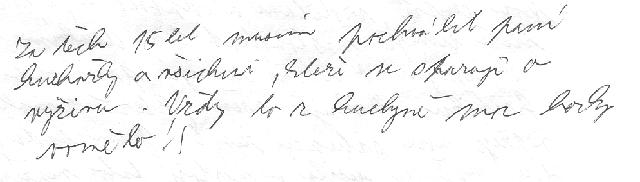 Za těch 15 let musím pochválit paní
kuchařky a všichni, kteří se starají o
výživu. Vždy to z kuchyně moc hezky
vonělo!!